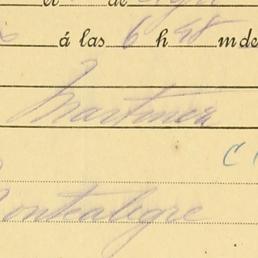 de
á las 6 h 48 m de
Martinez
Montealegre